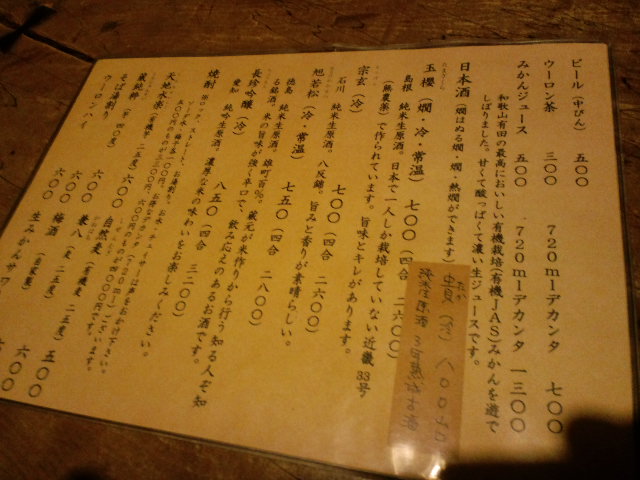 ビール（中びん） 五〇〇
ウーロン茶 三〇〇 720mlデカンタ 七〇〇
みかんジュース 五〇〇 720mlデカンタ 一三〇〇
和歌山有田の最高においしい有機栽培(有機JAS)みかんを遊で
しぼりました。甘くて酸っぱくて濃い生ジュースです。
日本酒（燗はぬる燗・燗・熱燗ができます）
玉櫻（燗・冷・常温） 七〇〇（四合 二六〇〇）
島根 純米生原酒。日本で一人しか栽培していない近畿33号
（無農薬）で作られています。旨味とキレがあります。
宗玄（冷） 七〇〇（四合 二六〇〇）
石川 純米生原酒。八反錦。旨みと香りが素晴らしい。
旭若松（冷・常温） 七五〇（四合 二八〇〇）
徳島 純米生原酒。雄町100％。蔵元が米作りから行う知る人ぞ知
る銘酒。米の旨味が強く辛口で、飲み応えのあるお酒です。
長珍吟醸（冷） 八五〇（四合 三二〇〇）
愛知 純吟生原酒。濃厚な米の味わいをお楽しみください。
貴（冷） 八〇〇
焼酎
ロック、ストレート、お湯割り、お水・チェイサーは声をおかけ下さい。
天地水楽（有機米 二五度） 六〇〇
自然麦（有機麦 二五度） 六〇〇
蔵純粋（芋 四〇度） 六〇〇
兼八（麦 二五度） 六〇〇
そば湯割り 六〇〇
梅酒（自家製） 五〇〇
ウーロンハイ 六〇〇
生みかんサワ 六〇〇